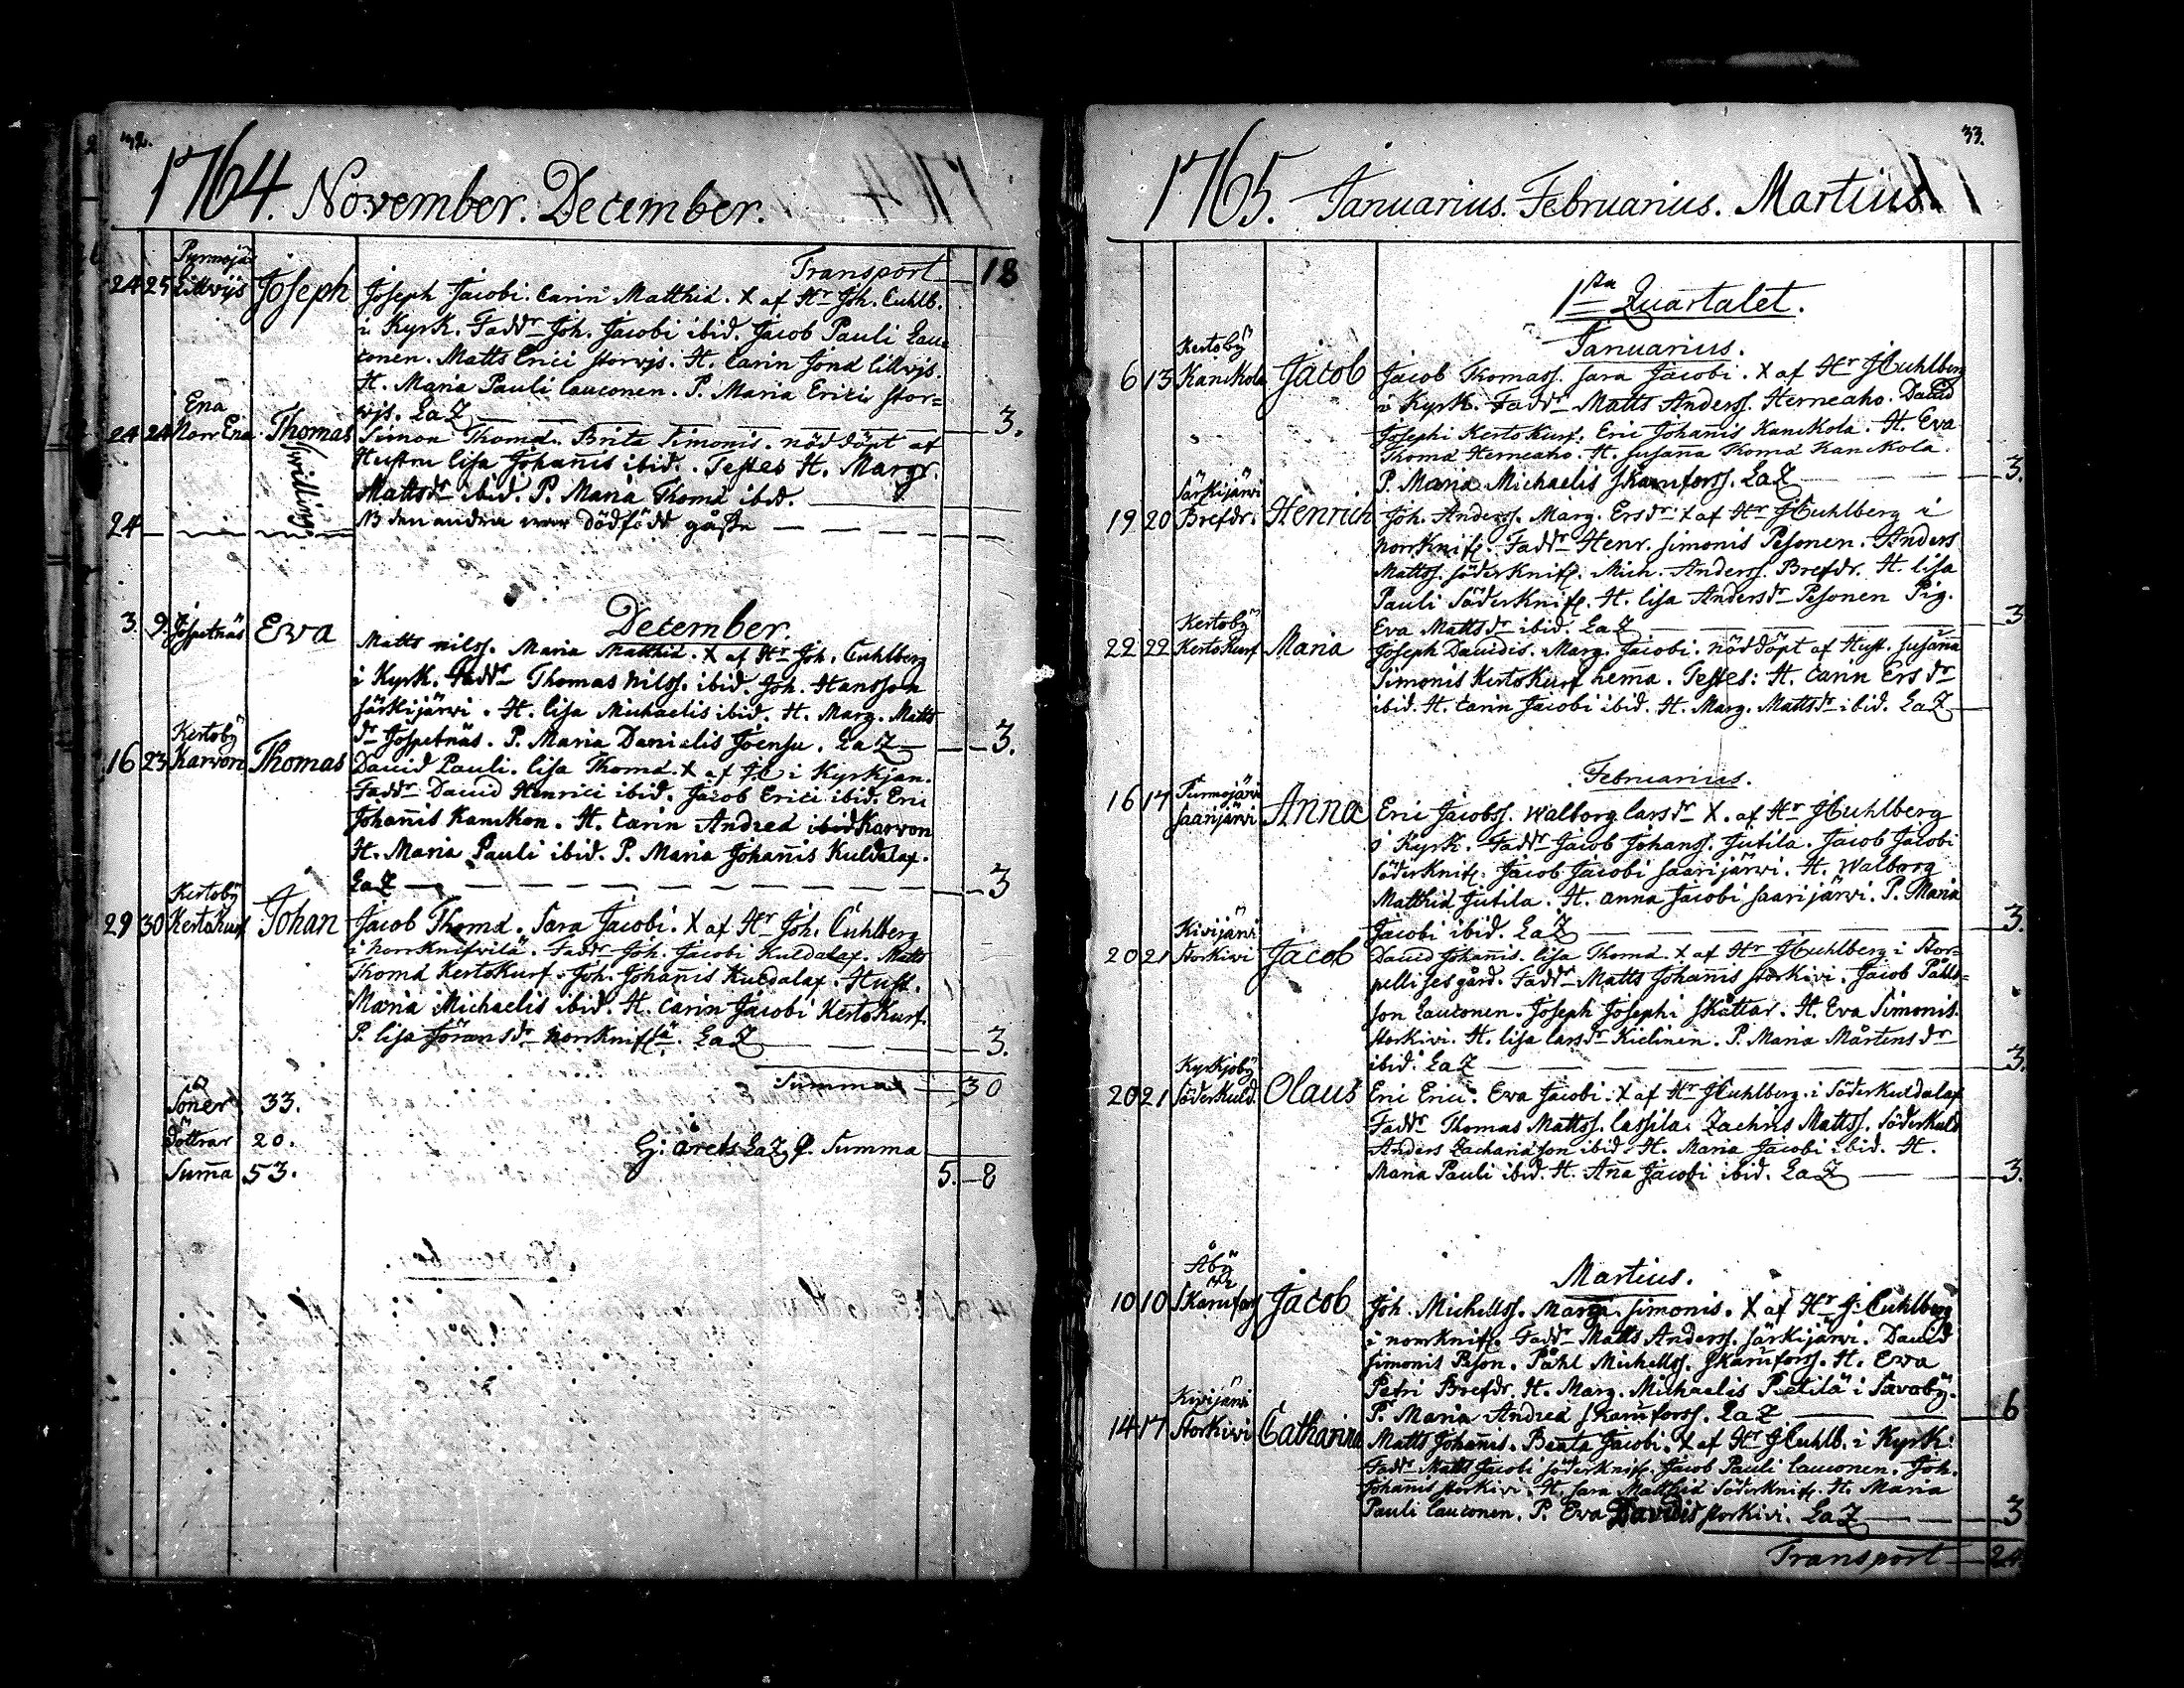 32.
1764. November. December.
Transport 18
24 25 Purmojä Lillwijs Joseph Joseph Jacobi. Carin Matthiæ. X af Hr Joh. Cuhlb.
i Kyrk. Faddr Joh. Jacobi ibid. Jacob Pauli Lau=
conen. Matts Erici storwjs. H. Carin Jonæ Lillwjs.
H. Maria Pauli Lauconen. P. Maria Erici stor=
wjs. LaZ 3.
24 24 Ena Norr Ena Thomas Simon Thomæ. Brita Simonis. nöd döpt af
Hustru Lisa Johan̄is ibid. Testes H. Margr.
Mattsdr ibid. P. Maria Thomæ ibid.
Twilling
24 NB den andra war dödfödd gåsse
December.
3. 9. Jöspetnäs Ewa Matts Nilss. Maria Matthiæ. X af Hr Joh. Cuhlberg
i Kyrk. Faddr Thomas Nilss. ibid. Joh. Hansson
Särkijärwi. H. Lisa Michaelis ibid. H. Marg. Matts
dr Jöspetnäs. P. Maria Danielis Joensu. LaZ 3.
16 23 Kertobÿ Karwon Thomas David Pauli. Lisa Thomæ. X af JC i Kyrkjan.
Faddr David Henrici ibid. Jacob Erici ibid. Eric
Johan̄is Kanckon. H. Carin Andreæ ibid Karwon
H. Maria Pauli ibid. P. Maria Johan̄is Kuldalax.
LaZ 3
29 30 Kertobÿ KertoKurf Johan Jacob Thomæ. Sara Jacobi. X af Hr Joh. Cuhlberg
i Norrknifwilä. Faddr Joh. Jacobi Kuldalax. Matts
Thomæ KertoKurf. Joh. Johan̄is Kuldalax. Hust.
Maria Michaelis ibid. H. Carin Jacobi KertoKurf.
P. Lisa Jöransdr Norrknifsä. LaZ 3.
Summa 30
Söner 33.
Döttrar 20.
Sum̄a 53.
årets LaZ Summa 5.–8
33.
1765. Januarius. Februarius. Martius.
1sta Quartalet.
Januarius.
6 13 Kertobÿ Kanckola Jacob Jacob Thomass. Sara Jacobi. X af Hr JCuhlberg
i Kyrk. Faddr Matts Anderss. Herneaho. David
Josephi KertoKurf. Eric Johan̄is Kanckola. H. Eva
Thomæ Herneaho. H. Susan̄a Thomæ Kanckola.
P. Maria Michaelis Skrufors. LaZ 3.
19 20 Särkijärwi Brefdr. Henrich Joh. Anderss. Marg. Ersdr X af Hr JCuhlberg i
Norrknif. Faddr Henr. Simonis Pesonen. Anders
Mattss. Söderknif. Mich. Anderss. Brefdr. H. Lisa
Pauli Söderknif. H. Lisa Andersdr Pesonen Pig.
Eva Mattsdr ibid. LaZ 3
22 22 Kertobÿ KertoKurf Maria Joseph Davidis. Marg. Jacobi. nöddöpt af Hust. Susan̄a
Simonis KertoKurf hem̄a. Testes: H. Carin Ersdr
ibid. H. Carin Jacobi ibid. H. Marg. Mattsdr ibid. LaZ
Februarius.
16 17 Purmojärwi Saarijärwi Anna Eric Jacobss. Walborg Larsdr X. af Hr JCuhlberg
i Kyrk. Faddr Jacob Johanss. Jutila. Jacob Jacobi
Söderknif. Jacob Jacobi Saarijärwi. H. Walborg
Matthiæ Jutila. H. Anna Jacobi Saarijärwi. P. Maria
Jacobi ibid. LaZ 3.
20 21 Kivijärwi Storkivi Jacob David Johan̄is. Lisa Thomæ. X af Hr JCuhlberg i Stor=
pellisesgård. Faddr Matts Johan̄is Storkivi. Jacob Påhls=
son Lauconen. Joseph Josephi Skattar. H. Eva Simonis
Storkivi. H. Lisa Larsdr Kielinen. P. Maria Mårtensdr
ibid. LaZ 3.
20 21 Kyrkjobÿ Söderkuld. Olaus Eric Erici. Eva Jacobi. X af Hr JCuhlberg. i Söderkuldalax
Faddr Thomas Mattss. Lassila. Zachris Mattss. Söderkuld
Anders Zachariæson ibid. H. Maria Jacobi ibid. H.
Maria Pauli ibid. H. An̄a Jacobi ibid. LaZ 3.
Martius.
10 10 Åbÿ Jacob Joh. Michelss. Marga. Simonis. X af Hr J. Cuhlberg
i Norrknif. Faddr Matts Anderss. Särkijärwi. David
Simonis Peson. Påhl Michelss. Skrufors. H. Ewa
Petri Brefdr. H. Marg. Michaelis Pietilä i Savobÿ.
P. Maria Andreæ Skrufors. LaZ 6
14 17 Kivijärwi Storkivi Catharina Matts Johan̄is. Beata Jacobi. X af Hr JCuhlb. i Kyrk.
Faddr Matts Jacobi Söderknif. Jacob Pauli Lauconen. Joh.
Johan̄is Storkivi. H. Sara Matthiæ Söderknif. H. Maria
Pauli Lauconen. P. Eva Davidis Storkivi. LaZ 3
Transport 24